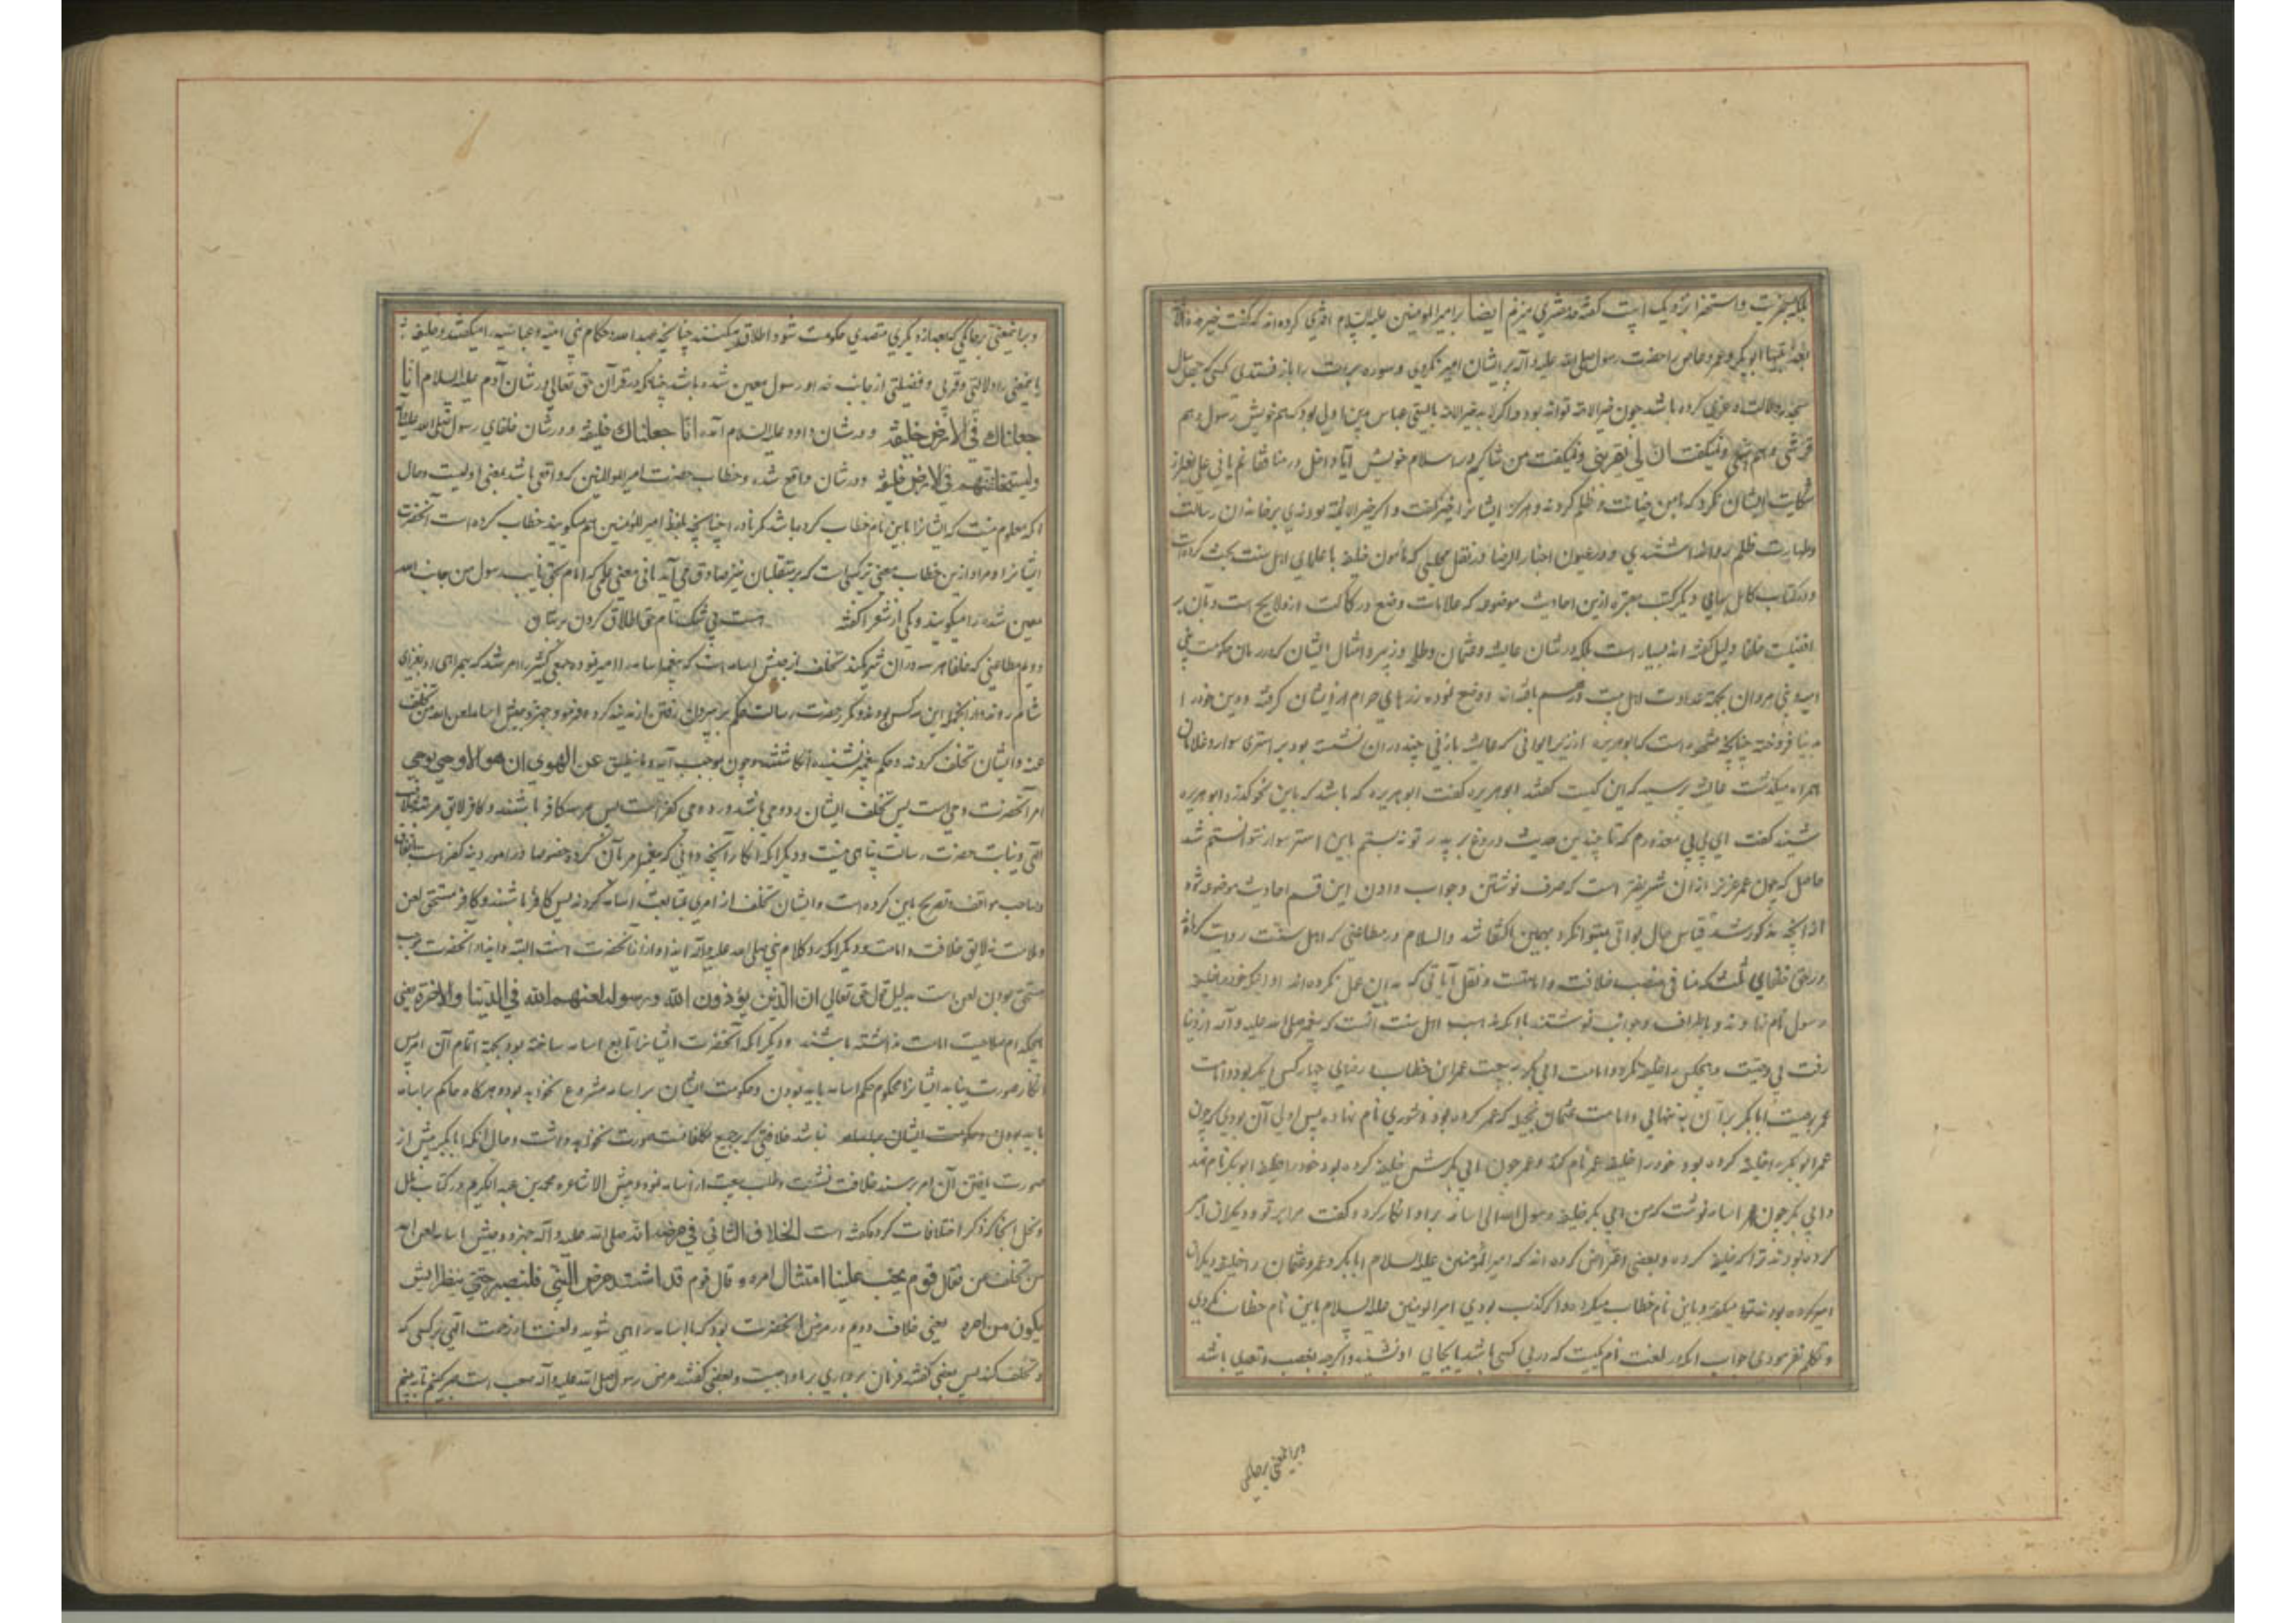 بلکه بسخریت و استهزا نزدیک است که گفته‌اند مفتری میزنم ایضا بر امیرالمومنین علیه السلام افتری کرده‌اند که گفت خیر هذه الامة
بعد نبیها ابوبکر و عمر و عاص را حضرت رسول صلی الله علیه و آله بر ایشان امیر نکردی و سوره برات را باز نستدی کسی که
باشد چون خیر الامة تواند بود و اگر نه خیر الامة بایستی عباس اول بود که هم خویش رسول و هم
قرشی و هم و نمیگفت ان لی و نمیگفت من شاکم در اسلام خویش آیا داخل در منافقانم یا نی علی
شکایت ایشان نکرد که بامن خیانت و ظلم کردند و هرگز ایشانرا خیر نگفت و اگر خیر الامة بودندی بر خاندان رسالت
و طهارت ظلم روا نداشتندی و در عیون اخبار الرضا در نقل مجلسی که مامون خلیفه با علمای اهل سنت بحث کرده است
و در کتاب کامل بهایی و دیگر کتب معتبره ازین احادیث موضوعه که علامات وضع و رکاکت ازو لایح است و بآن بر
افضلیت خلفا دلیل گفته اند بسیار است بلکه در شان عایشه و عثمان و طلحه و زبیر و امثال ایشان که در زمان حکومت بنی
امیه و بنی مروان بجهة عداوت اهل بیت درهم بافته‌اند و وضع نموده زرهای حرام ازیشان گرفته و دین خود را
بدنیا فروخته چنانچه مشهور است که ابوهریره از زیر ایوانی که عایشه با زنی چند در آن نشسته بود بر استری سوار و غلامان
همراه میگذشت عایشه پرسید که این کیست گفتند ابوهریره گفت ابوهریره که باشد که باین نحو گذرد ابوهریره
شنید گفت ای بی‌بی معذورم که تا چندین حدیث دروغ بر پدر تو نبستم باین استر سوار نتوانستم شد
حاصل که چون عمر عزیز از آن شریفتر است که صرف نوشتن و جواب دادن این قسم احادیث موضوعه شود
از آنچه مذکور شد قیاس حال بواقی میتوان کرد بهمین اکتفا شد والسلام در مطاعنی که اهل سنت روایت کرده‌اند
در حق خلفای ثلثه که منافی منصب خلافت و امامتست و نقل آیاتی که بدان عمل نکرده‌اند اول آنکه خود را خلیفه
رسول نام نهادند و باطراف و جوانب نوشتند با آنکه مذهب اهل سنت آنست که پیغمبر صلی الله علیه و آله از دنیا
رفت بی وصیت و هیچکس را خلیفه نکرد و امامت ابی بکر به بیعت عمر ابن خطاب با رضای چهار کس دیگر بود و امامت
عمر بوصیت ابابکر بر آن به تنهایی و امامت عثمان بحیله که عمر کرده بود و شوری نام نهاده پس اولی آن بودی که چون
عمر ابوبکر را خلیفه کرده بود خود را خلیفه عمر نام کند و عمر چون ابی بکرش خلیفه کرده بود خود را خلیفه ابوبکر نام نهد
و ابی بکر چون باسامه نوشت که من ابی بکر خلیفه رسول الله الی اسامه برو انکار کرد و گفت مرا بر تو و دیگران امیر
کرده بودند ترا که خلیفه کرده و بعضی اعتراض کرده اند که امیرالمؤمنین علیه السلام ابابکر و عمر و عثمان را خلیفه و دیگران
امیر کرده بودند و باین نام خطاب میکرد و اگر کذب بودی امیرالمومنین علیه السلام باین نام خطاب نکردی
و تکلم نفرمودی جواب آنکه در لغت نام کسیست که در پی کسی باشد یا بجای او نشیند و اگرچه بغصب و تعدی باشد
و براینمعنی برحاکمی
و براینمعنی بر حاکمی که بعد از دیگری متصدی حکومت شود اطلاق میکنند چنانچه حکام بنی امیه و عباسیه را میگفتند و خلیفه نه
باینمعنی را دلالتی و قربی و فضیلتی از جانب خدا و رسول معین شده باشد چنانکه در قرآن حق تعالی در شان آدم علیه السلام انا
جعلناک فی الارض خلیفة و در شان داود علیه السلام آمده انا جعلناک خلیفة و در شان خلفای رسول صلی الله علیه و آله
ولیستخلفنهم فی الارض خلیفة و در شان واقع شده و خطاب حضرت امیرالمومنین که واقعی باشد بمعنی اولیست و حال
آنکه معلوم نیست که ایشانرا باین نام خطاب کرده باشد مگر نادرا چنانچه بلفظ امیرالمؤمنین هم میگویند خطاب کرده است آنحضرت
ایشانرا و مراد ازین خطاب معنی ترکیبیست که بر متقلبان نیز صادق می آید نه معنی علمی که امام بحق نایب رسول من جانب الله
معین شده را میگویند و یکی از شعرا گفته است بی شک نام حق اطلاق کردن بر بتان
دویم مطاعنی که خلفا هر سه در آن شریکند تخلف از جیش اسامه است که پیغمبر اسامه را امیر نموده جمعی کثیر را امر شد که بهمراهی او بغزای
شام روند و از آنجمله این سه کس بودند و مکرر حضرت رسالت حکم به بیرون رفتن ازمدینه کرده فرمود جهزوا جیش اسامه لعن الله من تخلف
عنه و ایشان تخلف کردند و حکم پیغمبر نشنیده انگاشتند و چون بموجب آیه و ما ینطق عن الهوی ان هو الا وحی یوحی
امر آنحضرت وحی است پس تخلف ایشان رد وحی باشد و رد وحی کفر است پس هر سه کافر باشند و کافر لایق مرتبه خلافت
الهی و نیابت حضرت رسالت پناهی نیست و دیگر آنکه انکار آنچه دانی که پیغمبر امر بآن کرده خصوصا در امور دینیه کفر است باتفاق
و صاحب مواقف تصریح باین کرده است و ایشان تخلف از امری بمتابعت اسامه کردند پس کافر باشند و کافر مستحق لعن
و ملامت نه لایق خلافت و امامت و دیگر آنکه رد کلام نبی صلی الله علیه و آله ایذا و آزار آنحضرت است البته و ایذاء آنحضرت موجب
مستحق بودن لعن است بدلیل قول حق تعالی ان الذین یؤذون الله و رسوله لعنهم الله فی الدنیا والاخرة یعنی
هیچکدام صلاحیت امامت نداشته باشند و دیگر آنکه آنحضرت ایشانرا تابع اسامه ساخته بود بجهة اتمام آن امر پس
انکار صورت نیابد ایشانرا محکوم حکم اسامه باید بودن و حکومت ایشان بر اسامه مشروع نخواهد بود و هرگاه حاکم بر اسامه
نباید بودن و حکومت ایشان نباشد خلافتی که بجمیع مکلفانست صورت نخواهد داشت و حال آنکه ابابکر پیش از
صورت یافتن آن امر بر مسند خلافت نشست و طلب بیعت از اسامه نمود و پیش الاشاعره محمد بن عبدالکریم در کتاب ملل
و نحل آنجا که ذکر اختلافات کرده گفته است الخلاف الثانی فی مرضه انه صلی الله علیه و آله جهزوا جیش اسامه لعن الله
من تخلف عن فقال قوم یجب علینا امتثال امره و قال قوم قد اشتد مرض النبی فلنصبر حتی ننظر ایش
یکون من امره یعنی خلاف دویم در مرض آنحضرت بود که با اسامه راهی شوید و لعنت از رحمت الهی بر کسی که
تخلف کند پس بعضی گفتند فرمان برداری بر ما واجبست و بعضی گفتند مرض رسول صلی الله علیه و آله صعب است صبر کنیم تا ببینیم